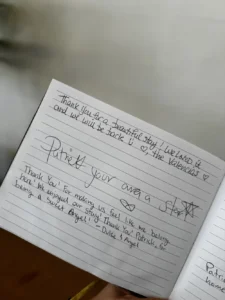 Thank you for a beautiful stay! We had a
and we will be back! ♡, the Valencias ♡
Patrick your are a star
Thank You! For making us feel like we belong
here! We enjoyed our stay! Thank You! Patrick, for
being A Sweet Angel!
- Duke & Angel
Patri
home